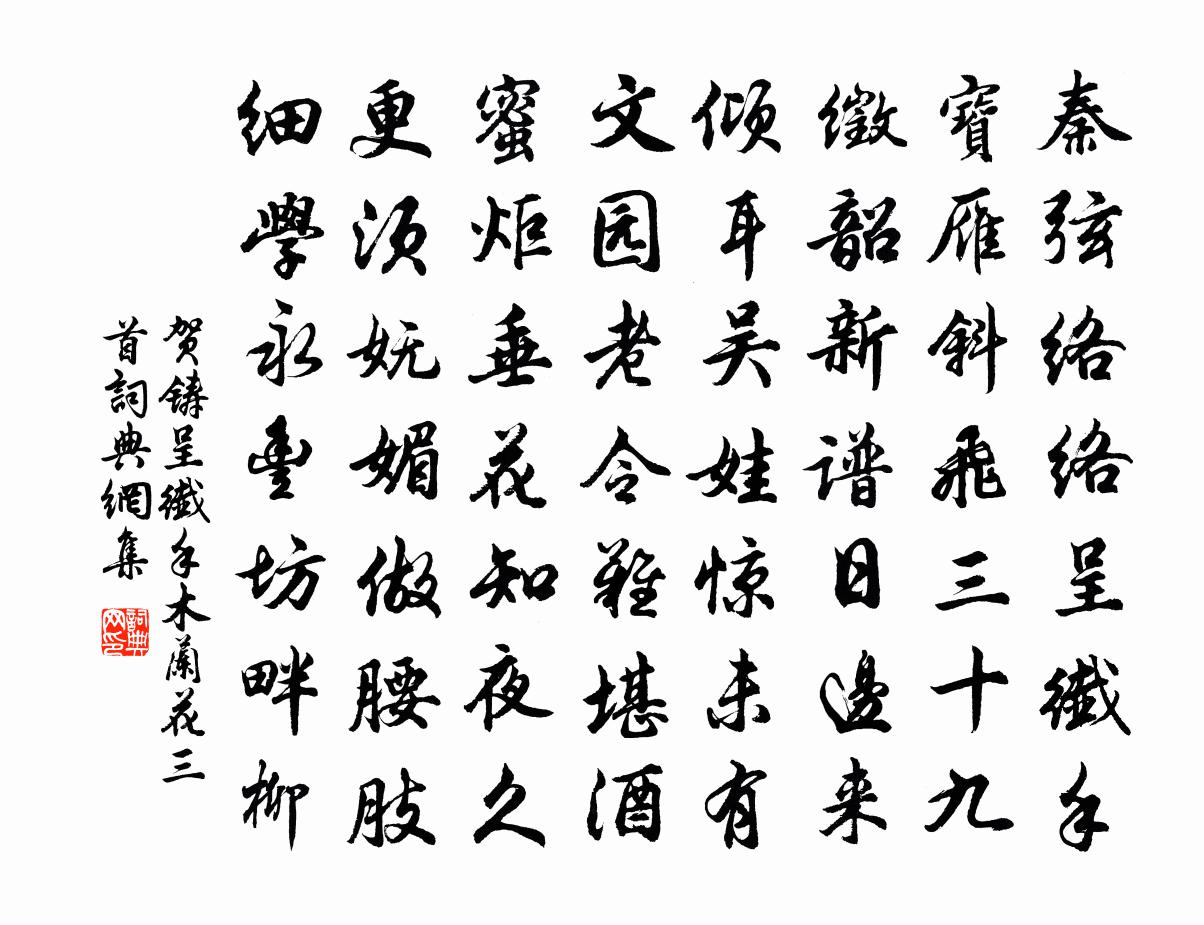 秦弦络络呈纖手
寶雁斜飛三十九
徵韶新谱日邊来
倾耳吴娃惊未有
文园老令難堪酒
蜜炬垂花知夜久
更须妩媚做腰肢
细學永豊坊畔柳
贺鑄呈纖手木蘭花三
首詞典網集
詞典网印